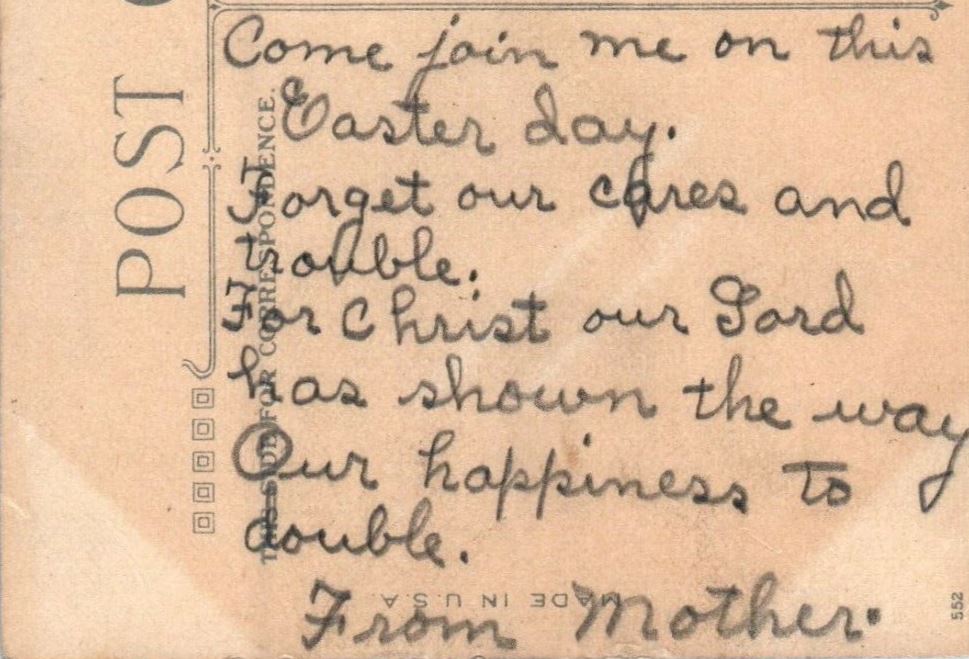 Come join me on this
Easter day.
Forget our cares and
trouble.
For Christ our Lord
has shown the way
Our happiness to
double.
From Mother.
POST
THIS SIDE FOR CORRESPONDENCE.
MADE IN U.S.A.
552